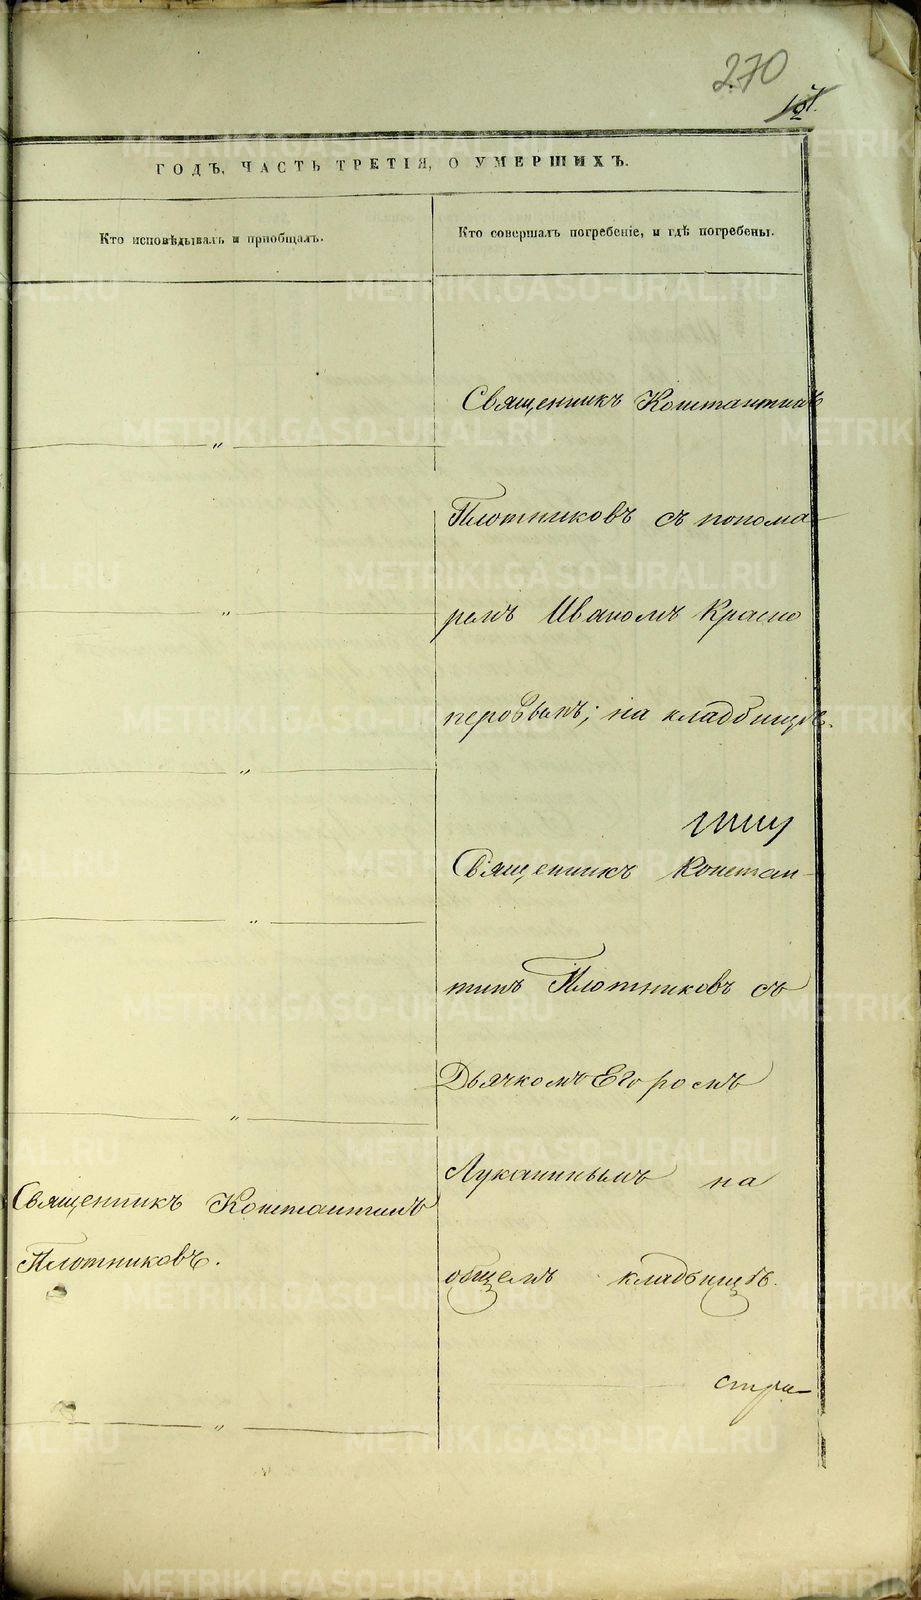 270
ГОДЪ, ЧАСТЬ ТРЕТІЯ, О УМЕРШИХЪ.
Кто исповѣдывалъ и пріобщалъ.
Кто совершалъ погребеніе, и гдѣ погребены.
Священникъ Константинъ
"
Плотниковъ съ понома-
"
ремъ Иваномъ Красно
перовымъ; на кладбищѣ.
"
Священникъ Констан-
"
тинъ Плотниковъ съ
Дьячкомъ Егоромъ
"
Луканинымъ на
общемъ кладбищѣ.
Священникъ Константинъ
Плотниковъ.
"
METRIKI.GASO-URAL.RU